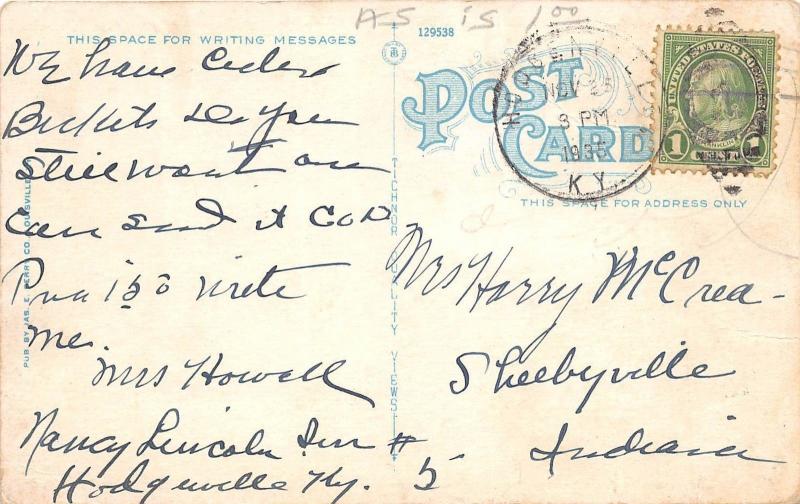 AS IS 1.00
THIS SPACE FOR WRITING MESSAGES
129538
POST CARD
THIS SPACE FOR ADDRESS ONLY
HODGENVILLE
NOV 25
3 PM
1935
KY.
UNITED STATES POSTAGE
FRANKLIN
1 1
We have Cedar
Buckets do you
still want one
Can send it COD
150 write
me.
Mrs Howell
Nancy Lincoln Inn #
Hodgenville Ky. 5
Mrs Harry McCrea-
Shelbyville
Indiana
PUB BY JAS. E. PERRY CO. LOUISVILLE
TICHNOR QUALITY VIEWS